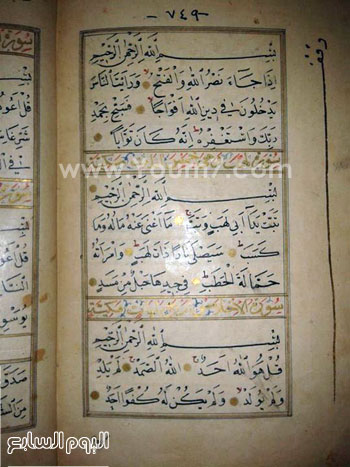 - ٧٤٩ -
بسم الله الرحمن الرحيم
اذا جاء نصر الله والفتح ورايت الناس
يدخلون في دين الله افواجا فسبح بحمد
ربك واستغفره انه كان توابا
www.Youm7.com
بسم الله الرحمن الرحيم
تبت يدا ابي لهب وتب ما اغنى عنه ماله وما
كسب سيصلى نارا ذات لهب وامراته
حمالة الحطب في جيدها حبل من مسد
سورة الاخلاص
بسم الله الرحمن الرحيم
قل هو الله احد الله الصمد لم يلد
ولم يولد ولم يكن له كفوا احد
اليوم السابع